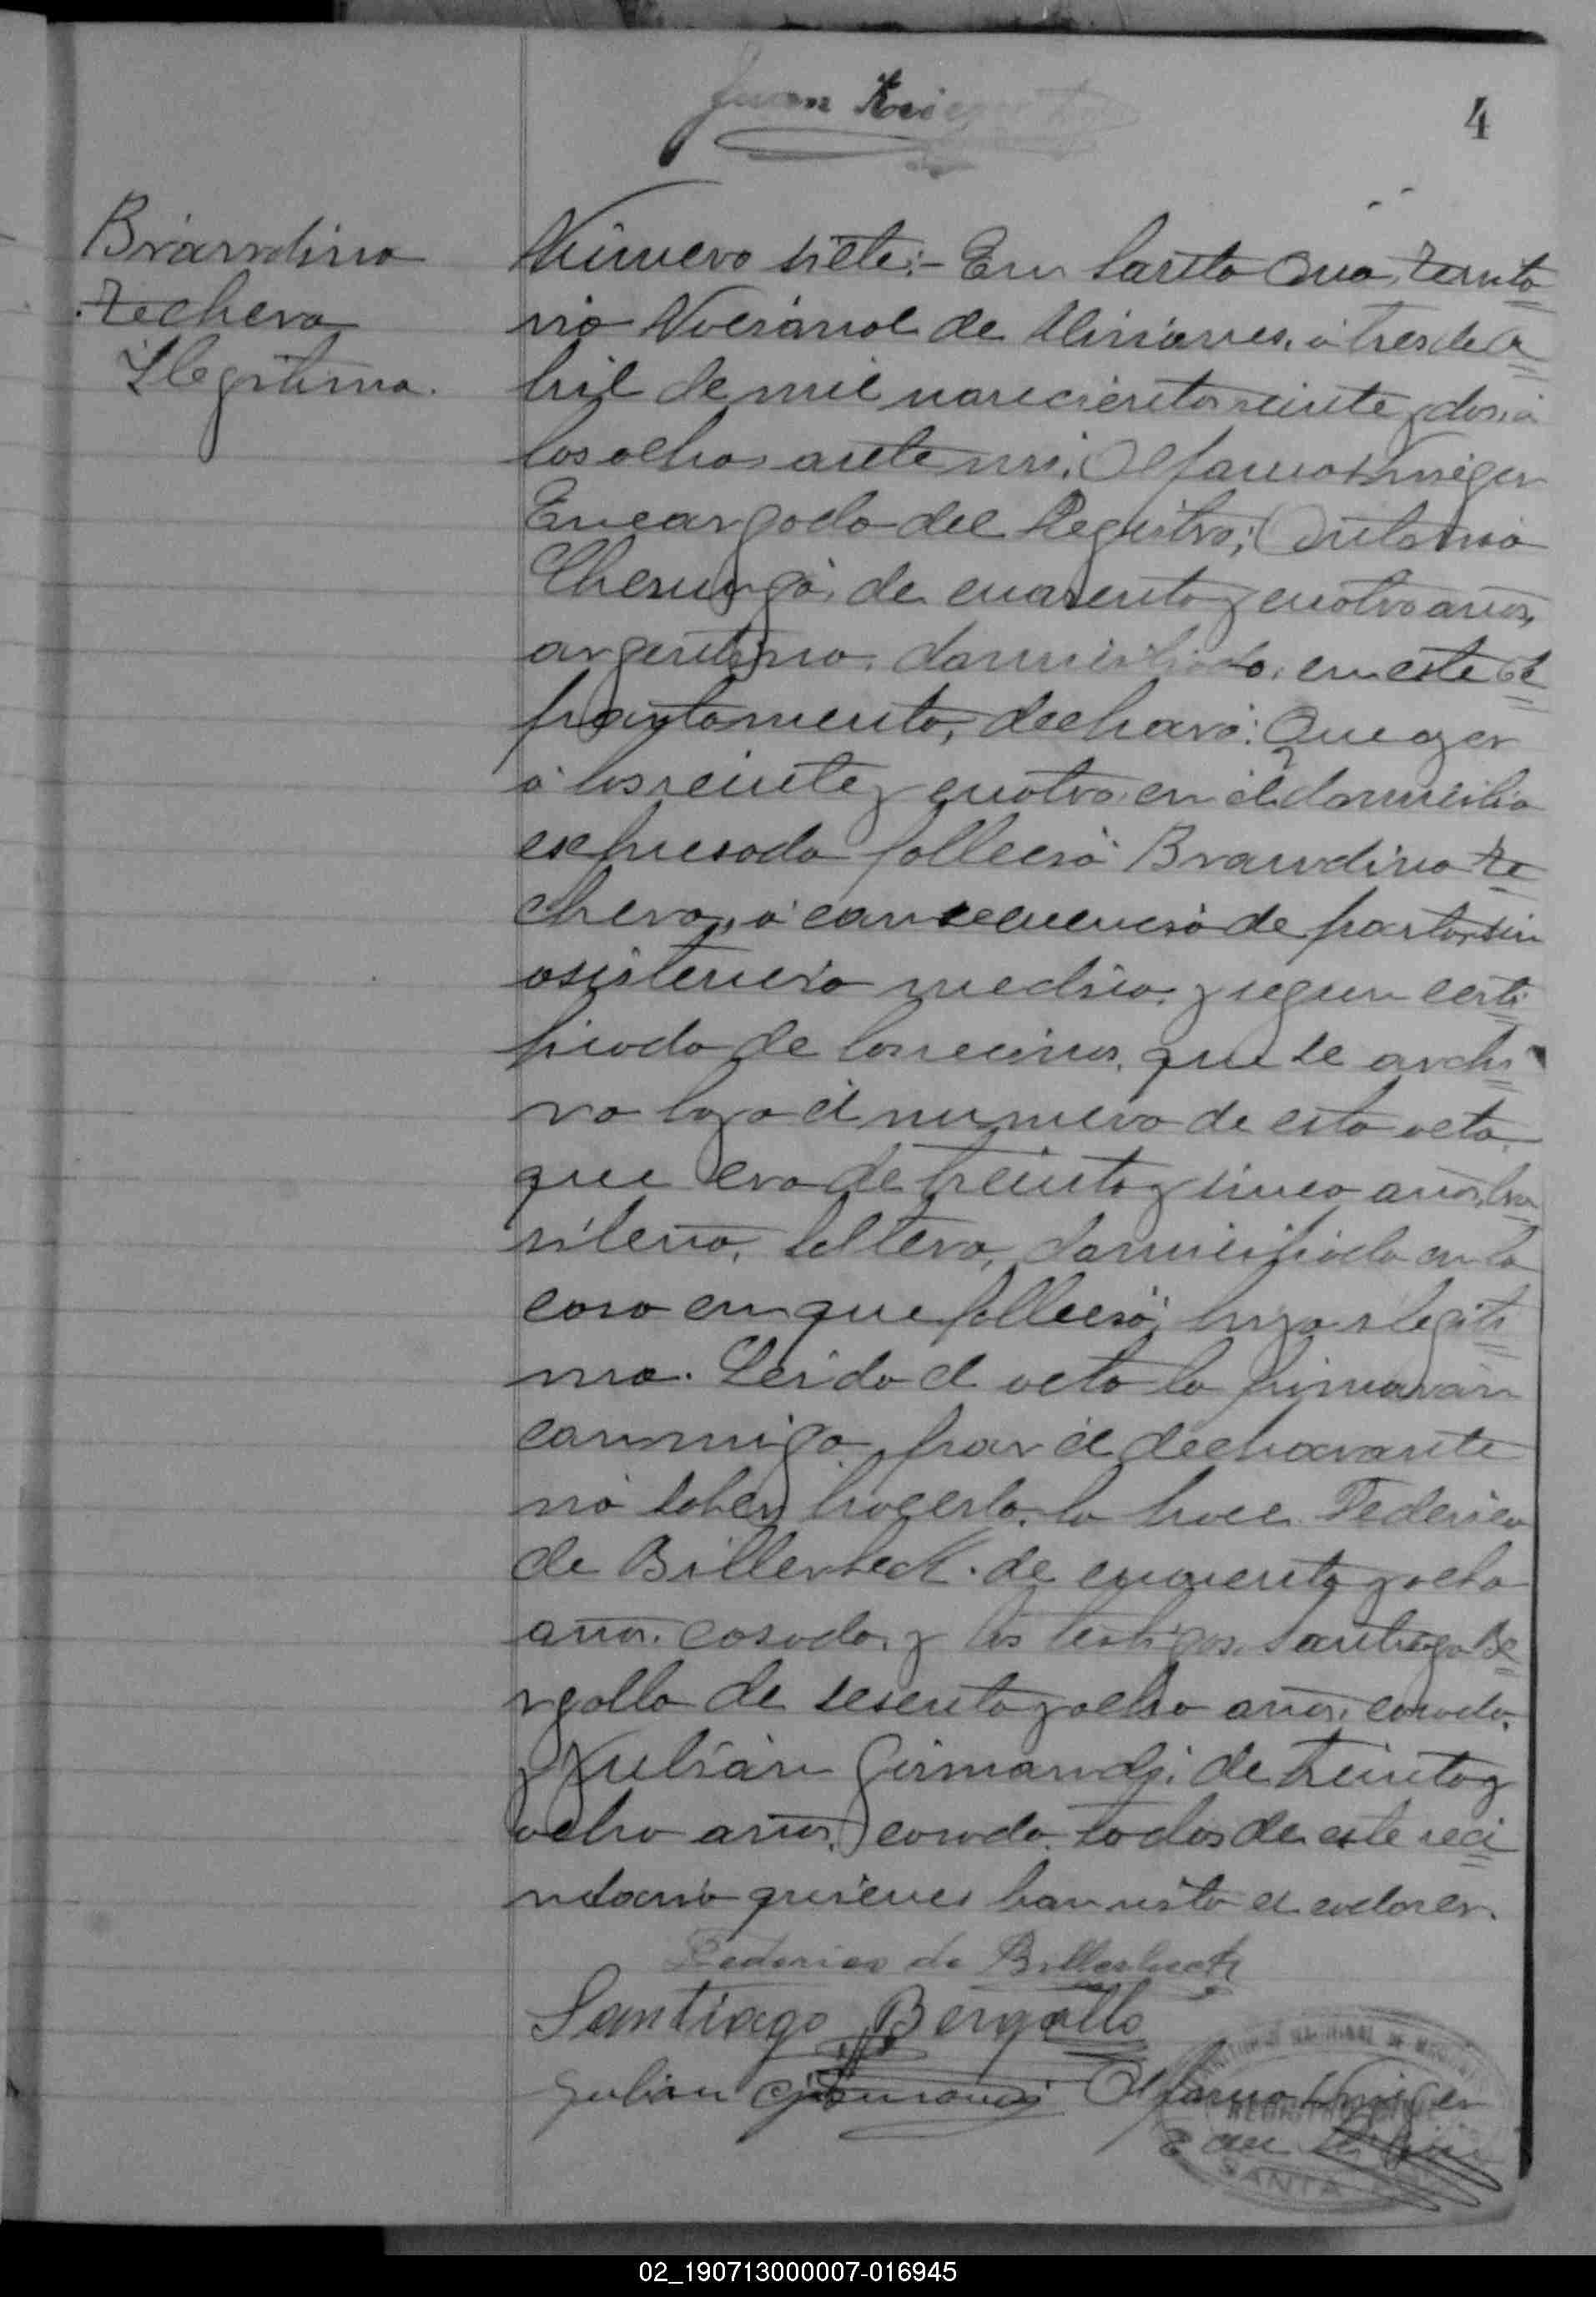 Juan
4
Brandina
Techera
Ilegitima.
Número siete:- En Santa Ana, Territo
rio Nacional de Misiones, á tres de A
bril de mil novecientos veinte y dos, á
las ocho, ante mi, Krieger
Encargado del Registro; Antonio
de cuarenta y cuatro años,
argentino, domiciliado, en este de
partamento, declaró: Que ayer
á las veinte y cuatro, en el domicilio
expresado falleció Brandina Te
chera, á consecuencia de parto, sin
asistencia medica, y segun certi
ficado de los vecinos, que se archi
va bajo el numero de esta acta,
que era de treinta y cinco años, bra
sileña, soltera, domiciliada en la
casa en que falleció; hija ilegiti
ma. Leida el acta la firmarán
conmigo, por el declarante
nó saber hacerlo, lo hace Federico
de Billerbeck. de cuarenta y ocho
años, casado, y los testigos, Santiago Be
rgallo de sesenta y ocho años, casado,
y Julián Gismandi, de treinta y
ocho años, casado, todos de este veci
ndario quienes han visto el cadaver.
Federico de Billerbeck
Santiago Bergallo
Julian Krieger
SANTA
02_190713000007-016945